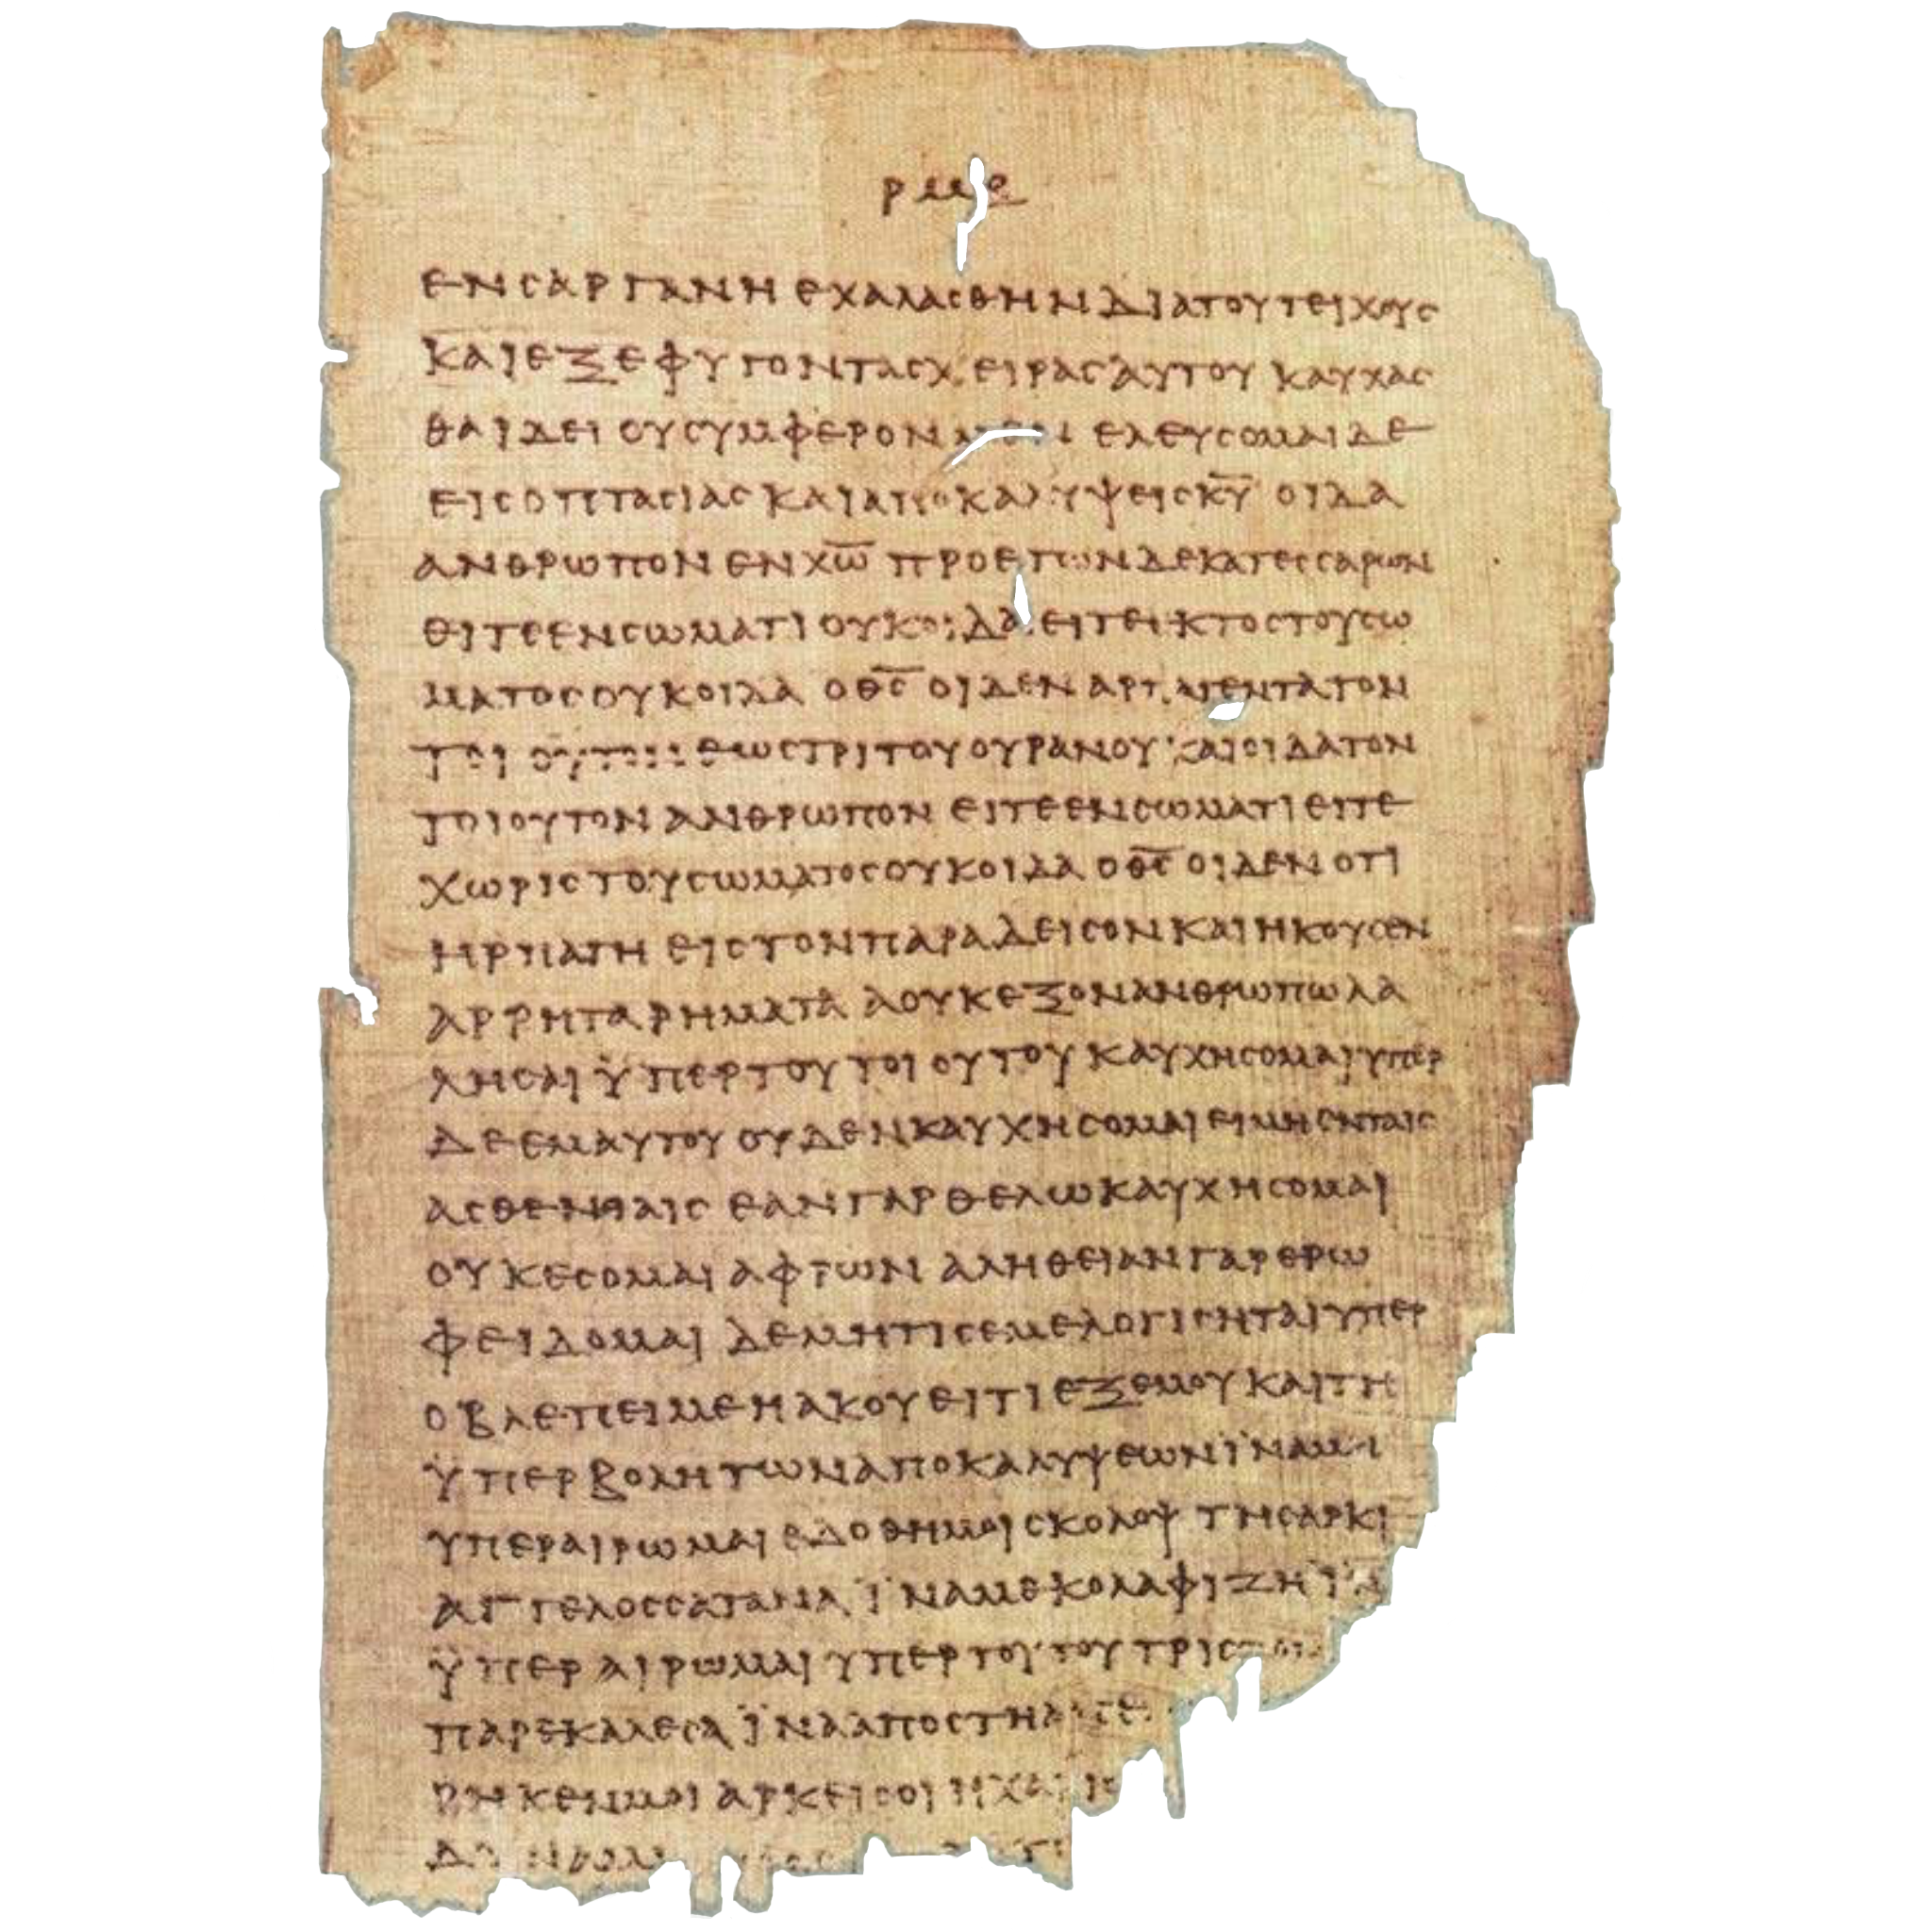 ρμε
ενσαργανηεχαλασθηνδιατουτειχους
καιεξεφυγοντασχειρασαυτου καυχας
θαιδει ουσυμφερον ελευσομαιδε
εισοπτασιας καιαποκαλυψεισκ̅υ̅ οιδα
ανθρωπον ενχ̅ω̅ προετωνδεκατεσσαρων
ειτεενσωματι ουκοιδα ειτεεκτοςτουσω
ματοςουκοιδα οθ̅ς̅ οιδεν αρπαγεντατον
τοιουτον εωςτριτουουρανου καιοιδατον
τοιουτον ανθρωπον ειτεενσωματι ειτε
χωριςτουσωματοςουκοιδα οθ̅ς̅ οιδεν οτι
ηρπαγη ειςτονπαραδεισονκαιηκουσεν
αρρηταρηματα αουκεξονανθρωπωλα
λησαι ϋπερτουτοιουτου καυχησομαιυπερ
δεεμαυτου ουδενκαυχησομαι ειμηενταις
ασθενιαις εανγαρθελωκαυχησομαι
ουκεσομαι αφρων αληθειανγαρερω
φειδομαι δεμητιςεμελογισηταιυπερ
οβλεπειμεηακουειτι εξεμουκαιτη
ϋπερβολητωναποκαλυψεωνϊναμη
υπεραιρωμαι εδοθημοισκολοψ τησαρκι
αγγελοςσατανα ϊναμεκολαφιζηϊνα
ϋπεραιρωμαι υπερτουτουτρις
παρεκαλεσα ϊνααποστη
ρηκενμοι αρκεισοιηχαρις